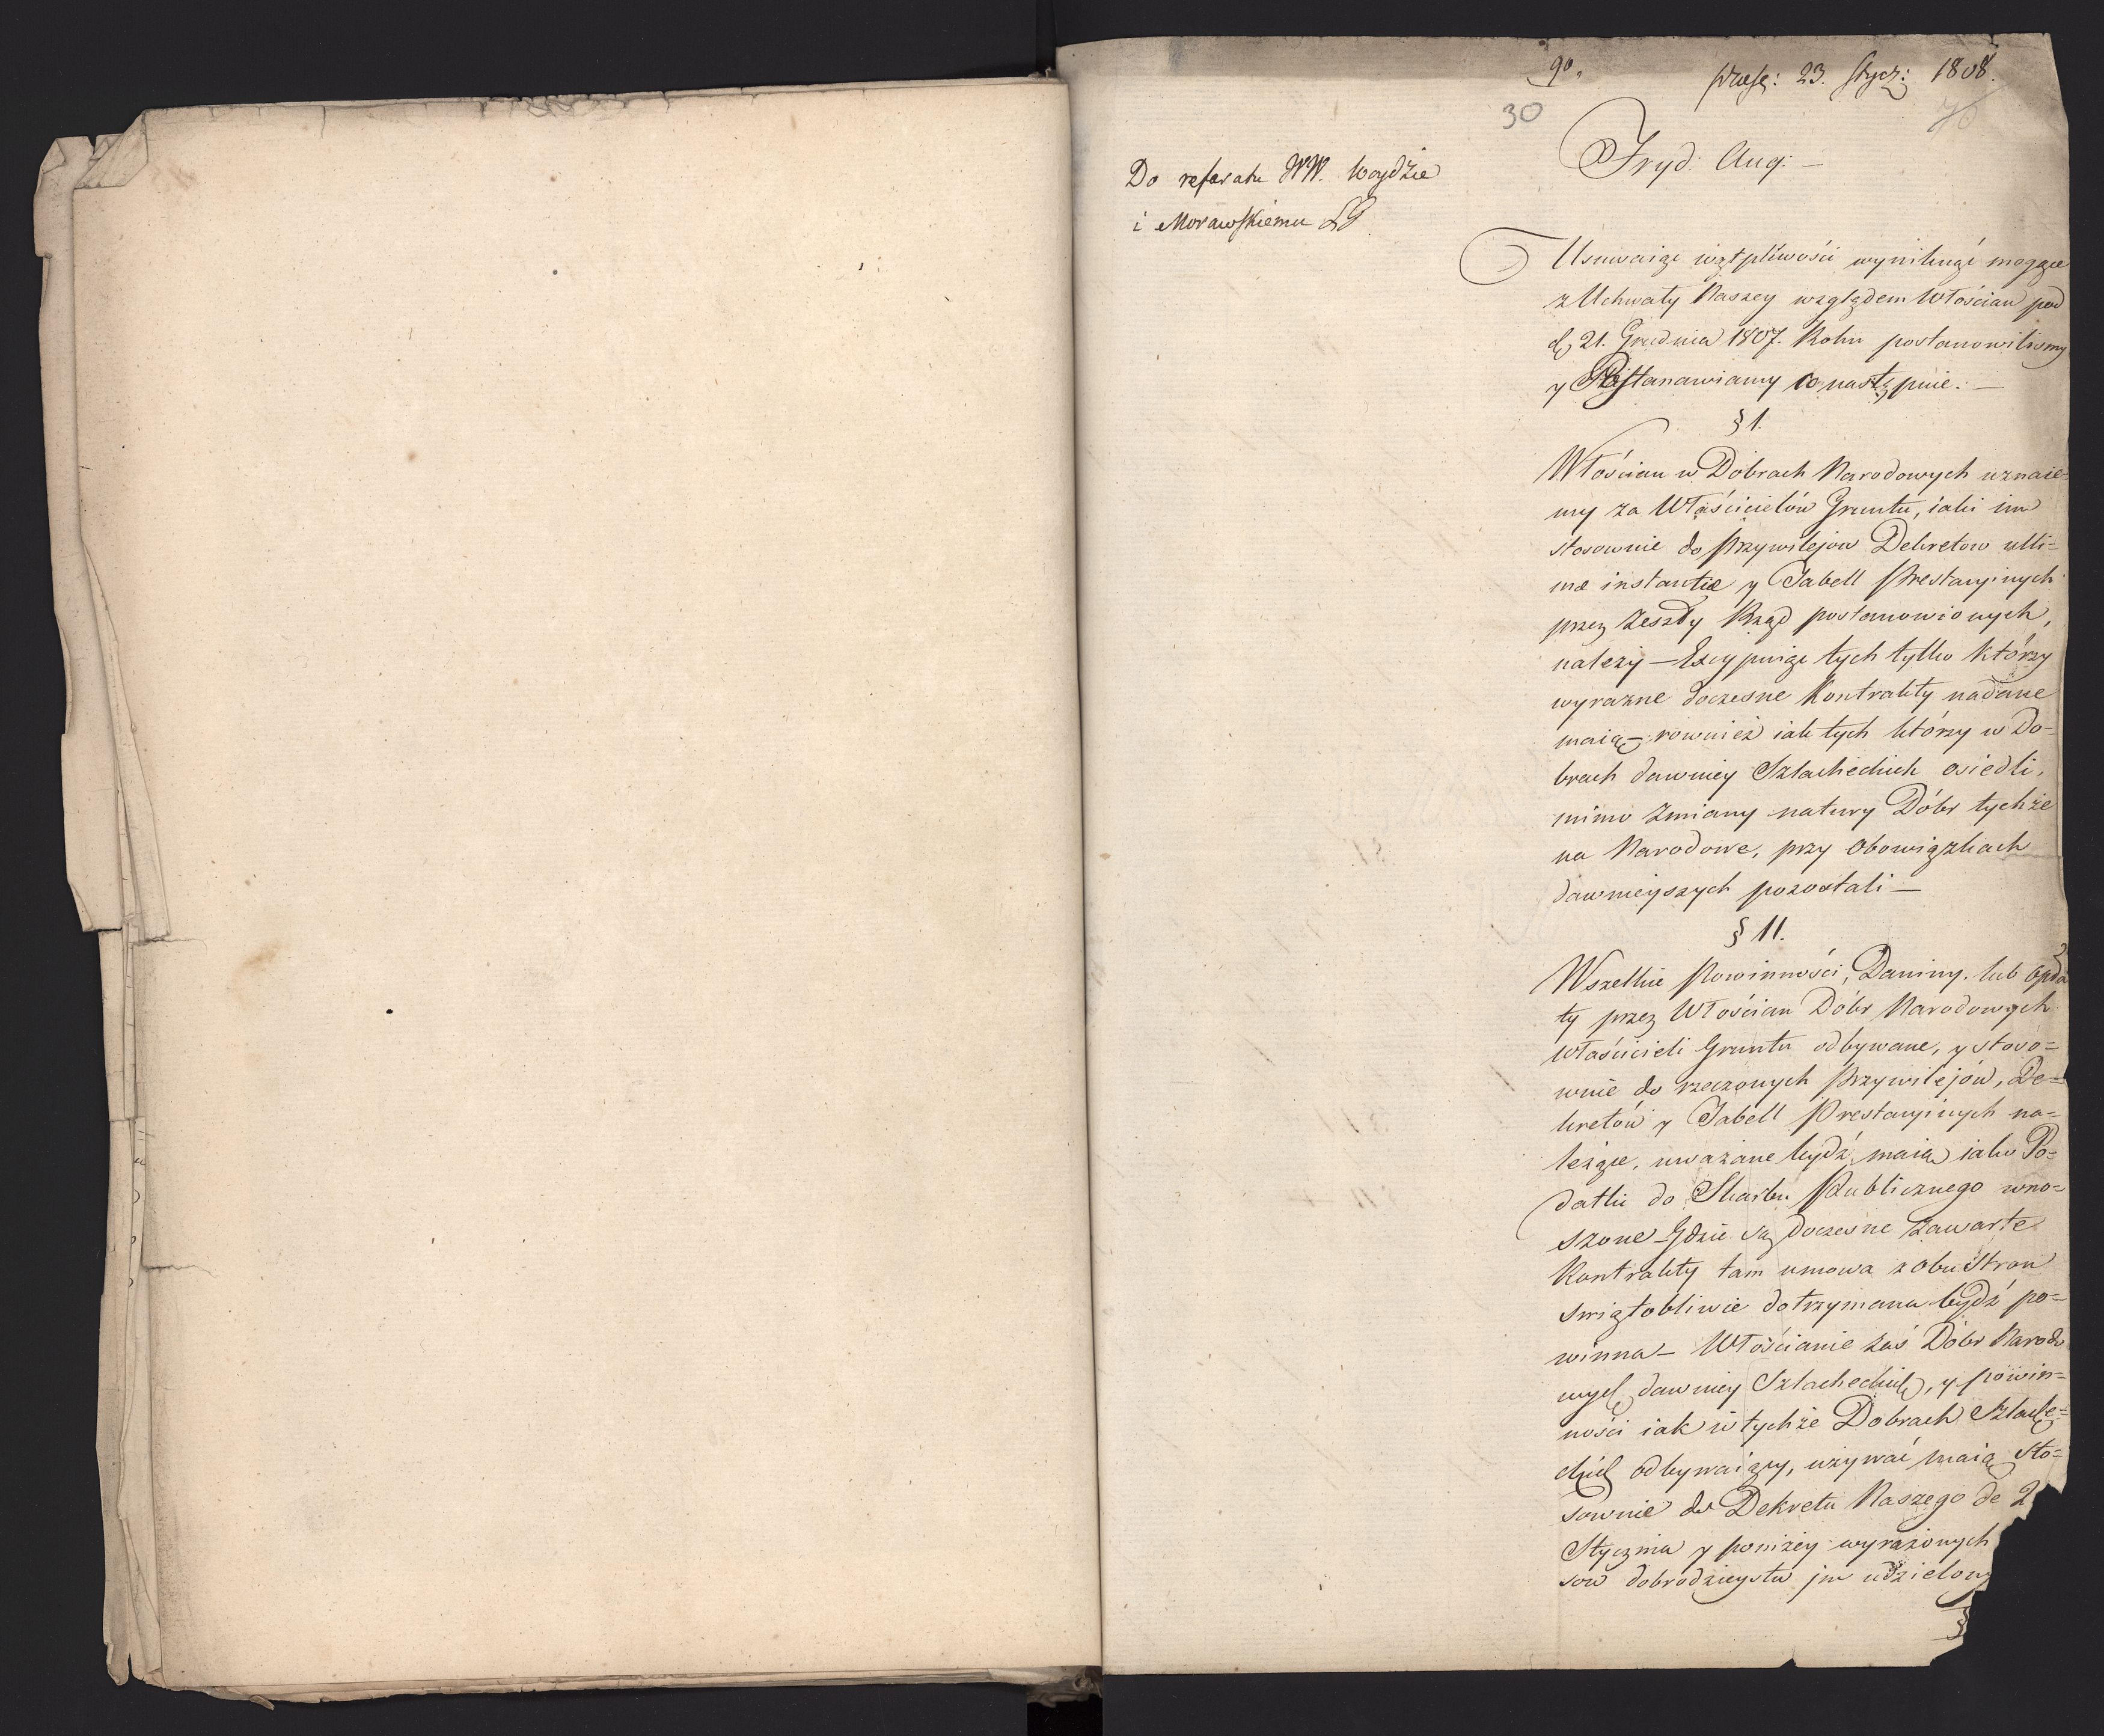 90.
praes: 23. Stycz: 1808.
30
Do referatu WW. Woydzie
i Morawskiemu
Fryd: Aug: —
Usuwaiąc wątpliwości wyniknąć mogące
z Uchwały Naszey względem Włościan pod
d. 21. Grudnia 1807. Roku postanowilismy
y Postanawiamy co nastęspuie. —
§ 1.
Włościan w Dobrach Narodowych uznaie=
my za Właścicielów Gruntu, iaki im
stosownie do Przywilejow Dekretow ulti=
mæ instantiæ y Tabell Prestacyinych
przez Zeszły Rząd postanowionych,
należy — Excypuiąc tych tylko którzy
wyrazne doczesne Kontrakty nadane
maią — rownież iak tych którzy w Do=
brach dawniey Szlacheckich osiedli,
mimo Zmiany natury Dóbr tychże
na Narodowe, przy Obowiązkach
dawnieyszych pozostali —
§ II.
Wszelkie Powinności, Daniny. lub Opła
ty przez Włościan Dóbr Narodowych
właścicieli Gruntu odbywane, y stoso=
wnie do rzeczonych Przywilejów, De=
kretów y Tabell Prestacyinych na=
leżące, uważane bydź maią iako Po=
datki do Skarbu Publicznego wno=
szone — Gdzie są doczesne zawarte
Kontrakty tam umowa z obu Stron
swiątobliwie dotrzymana bydź po=
winna — Włościanie zaś Dóbr Narodo
wych dawniey Szlacheckich, y powin=
ności iak w tychże Dobrach Szlache=
ckich odbywaiący, używać maią sto=
sownie do Dekretu Naszego de 2
Stycznia y poniżey wyrażonych
sow dobrodzieystw jm udzielony
§